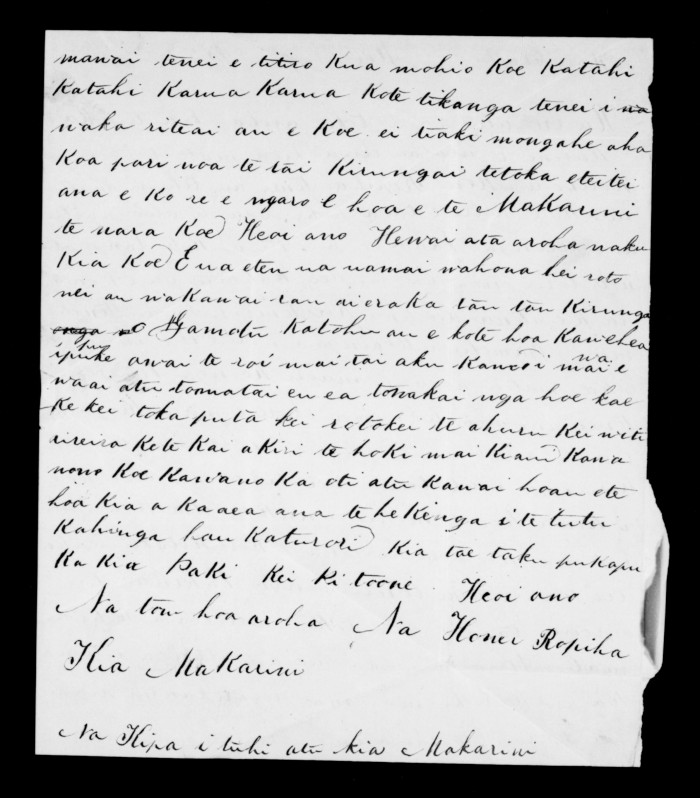 mawai tenei e titiro Kua mohio Koe Katahi
Katahi Karua Karua Kote tikanga tenei i wa
waka riteai au e Koe ei tiaki mongahe aha
Koa pari noa te tai Kirungai tetoka eteitei
ana e Ko re e ngaro E hoa e te MaKarini
te nara Koe Heoi ano Hewai ata aroha naku
Kia Koe E ua eten na uamai wahoua hei roto
nei au wakawai rau aieraka tau tau Kirunga
Katohu au e kote hoa Kawehea
ipuke awai te roi mai tai aku i mai wa e
waai atu tomatai eu ea towakai nga hoe kae
Ke kei toka puta kei rotokei te ahuru Kei witi
rireira Kete Kai aKiri te hoki mai Kiau Kawa
nono Koe Kawano Ka oti atu Kawai hoau ete
hoa Kia a Kaaea ana te heKenga i te tutu
Kahinga hau Katurori Kia tae taku pukapu
Ka Kia Paki Kei Pitoone Heoi ano
Na tou hoa aroha Na Honei Ropiha
Kia MaKarini
Na Kipa i tuhi atu kia Makarini